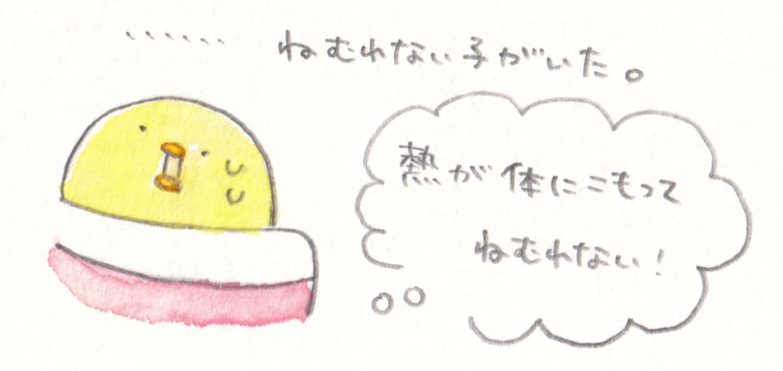 ...... ねむれない子がいた。
熱が体にこもって
ねむれない!